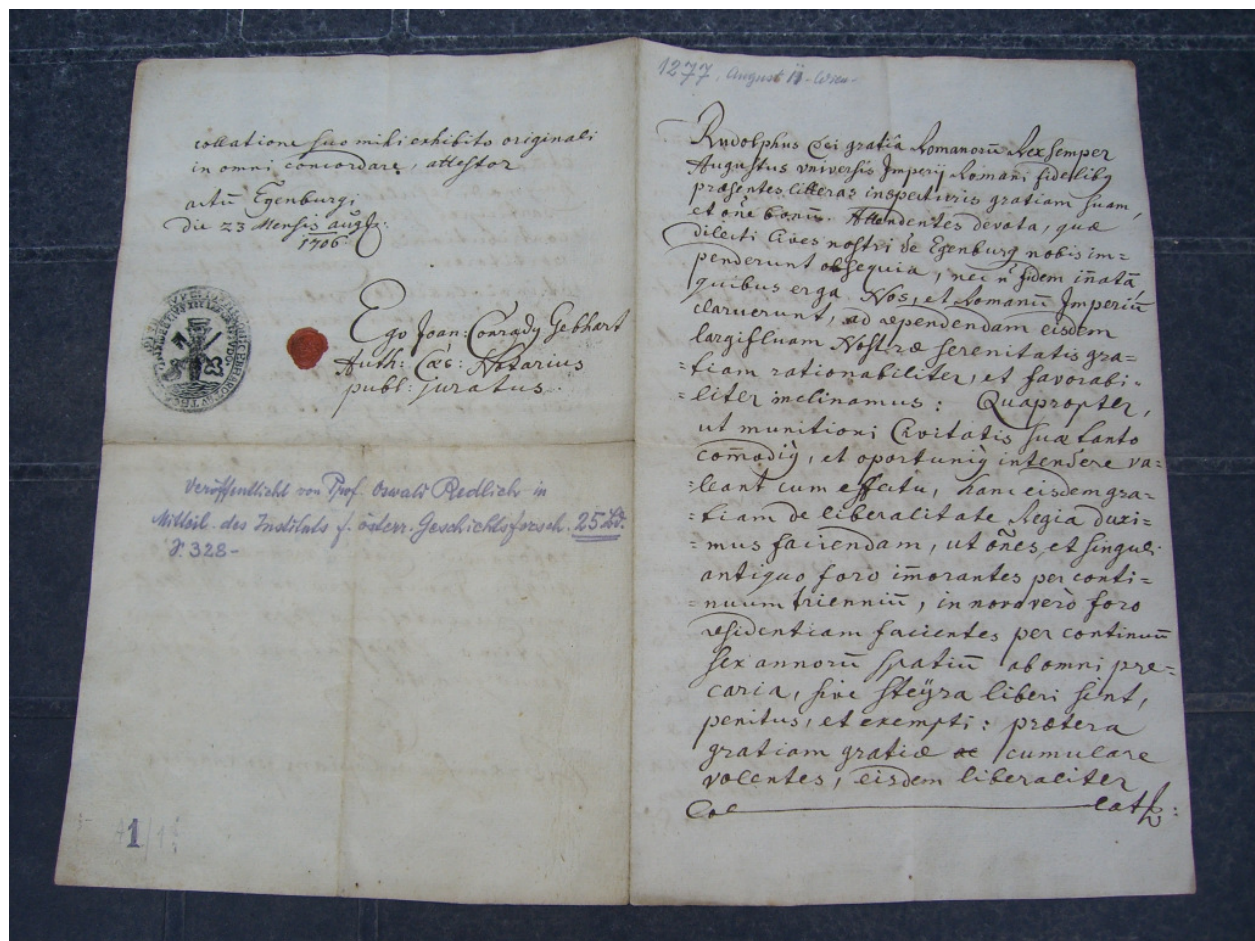 collatione suo mihi exhibito originali
in omni concordare, attestor
actū Egenburgi
die 23 Mensis augȝ:
1706
Ego Joan: Conrady Gebhart
Auth: Cæs: Notarius
publ: Juratus
Veröffentlicht von Prof. Oswald Redlich in
Mitteil. des Instituts f. österr. Geschichtsforsch. 25 Bd.
S. 328-
1
1277, August 11 - Wien -
Rudolphus Dei gratia Romanorū Rex semper
Augustus universis Imperij Romani fideliby
præsentes litteras inspecturis gratiam suam,
et oñe bonū. Attendentes devota, quæ
dilecti Cives nostri de Egenburg nobis im=
penderunt obsequia, nec n̄ fidem iñatā,
quibus erga Nos, et Romanū Imperiū
claruerunt, ad rependendam eisdem
largifluam Nostræ serenitatis gra=
=tiam rationabiliter, et favorabi=
=liter inclinamus: Quapropter,
ut munitioni Civitatis suæ tanto
com̄odiȳ, et oportuniȳ intendere va=
=leant cum effectu, hanc eisdem gra=
=tiam de liberalitate Regia duxi=
=mus faciendam, ut oñes, et singuli
antiquo foro im̄orantes per conti=
=nuum trienniū, in novo verò foro
residentiam facientes per continuū
sex annorū spatiū ab omni pre=
caria, sive steÿra liberi sint,
penitus, et exempti: prætera
gratiam gratiæ ac cumulare
volentes, eisdem liberaliter
Col lat